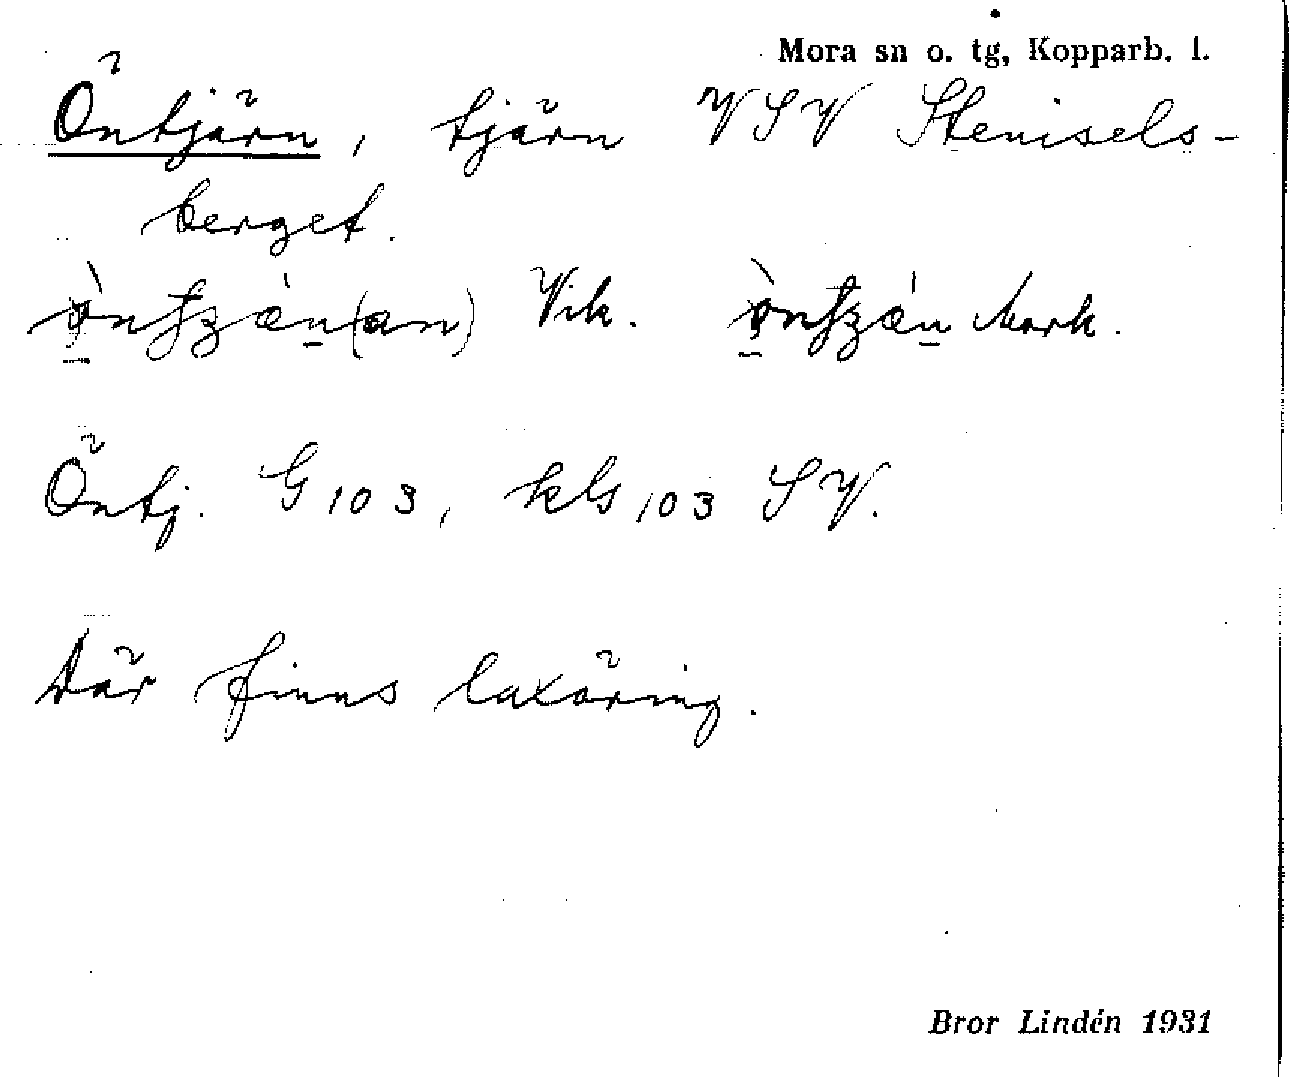 Mora sn o. tg, Kopparb. l.
Öntjärn, tjärn VSV Stenisels-
berget.
Vik. Mork.
Öntj. G 103, kG 103 SV.
Där finns laxöring.
Bror Lindén 1931